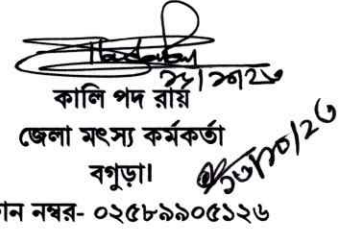 কালি পদ রায়
জেলা মৎস্য কর্মকর্তা
বগুড়া।
ান নম্বর- ০২৫৮৯৯০৫১২৬